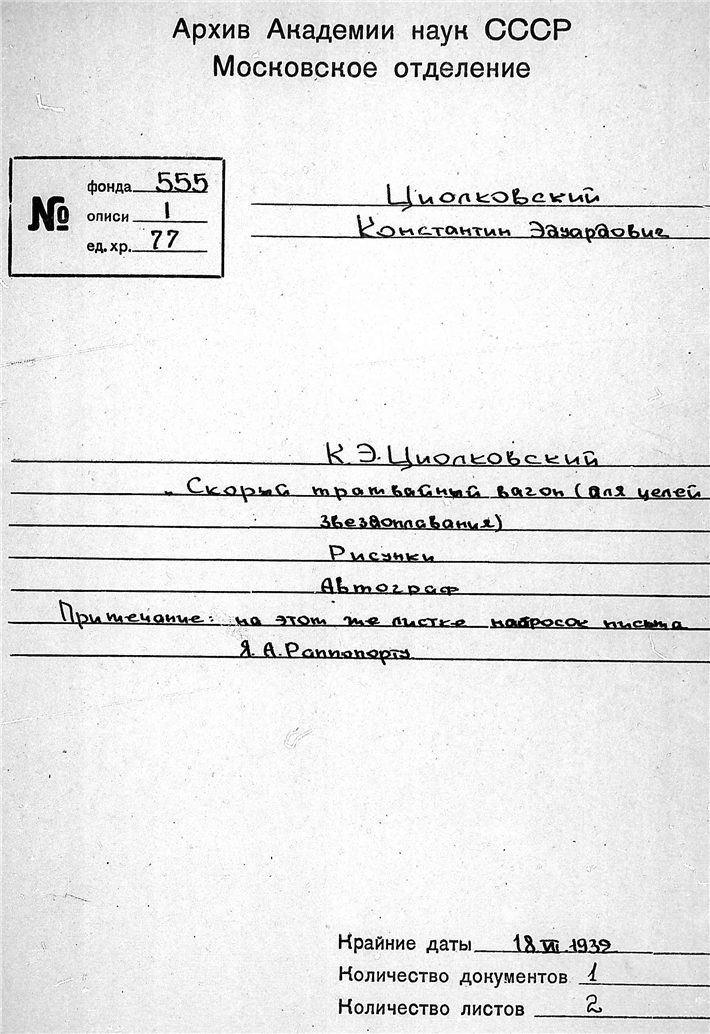 Архив Академии наук СССР
Московское отделение
№
фонда 555
описи 1
ед. хр. 77
Циолковский
Константин Эдуардович
К.Э.Циолковский
"Скорый трамвайный вагон (для целей
звездоплавания)
Рисунки
Автограф
Примечание: на этом же листке набросок письма
Я.А.Раппопорту
Крайние даты 18 VII 1939
Количество документов 1
Количество листов 2